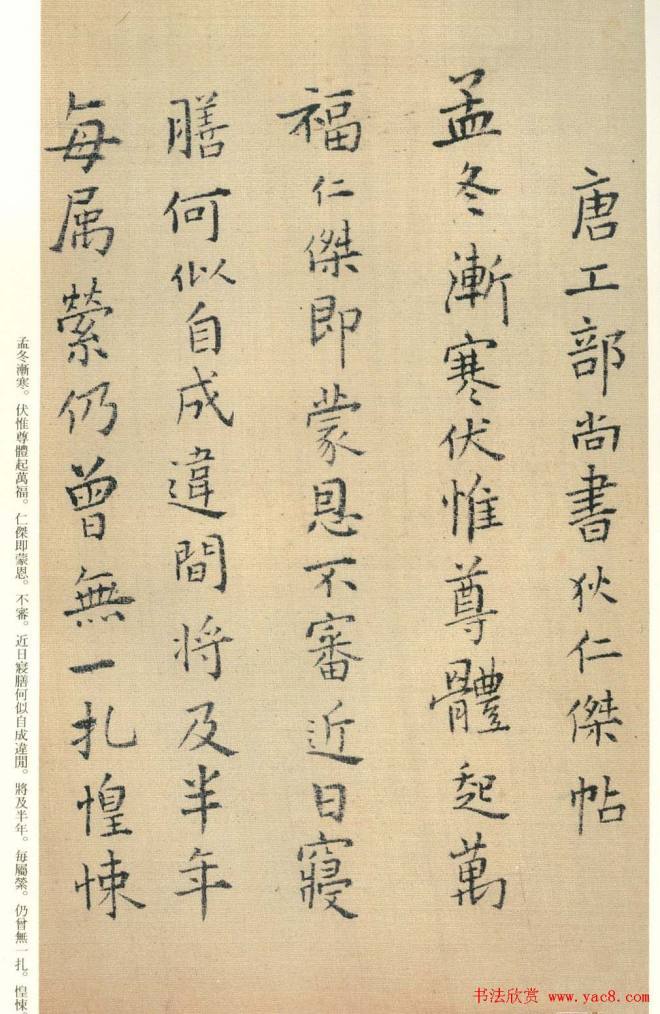 唐工部尚書狄仁傑帖
孟冬漸寒伏惟尊體起萬
福仁傑即蒙恩不審近日寢
膳何似自成違間將及半年
每属縈仍曾無一扎惶悚
孟冬漸寒。伏惟尊體起萬福。仁傑即蒙恩。不審。近日寢膳何似自成違間。將及半年。每屬縈。仍曾無一扎。惶悚。
书法欣赏 www.yac8.com